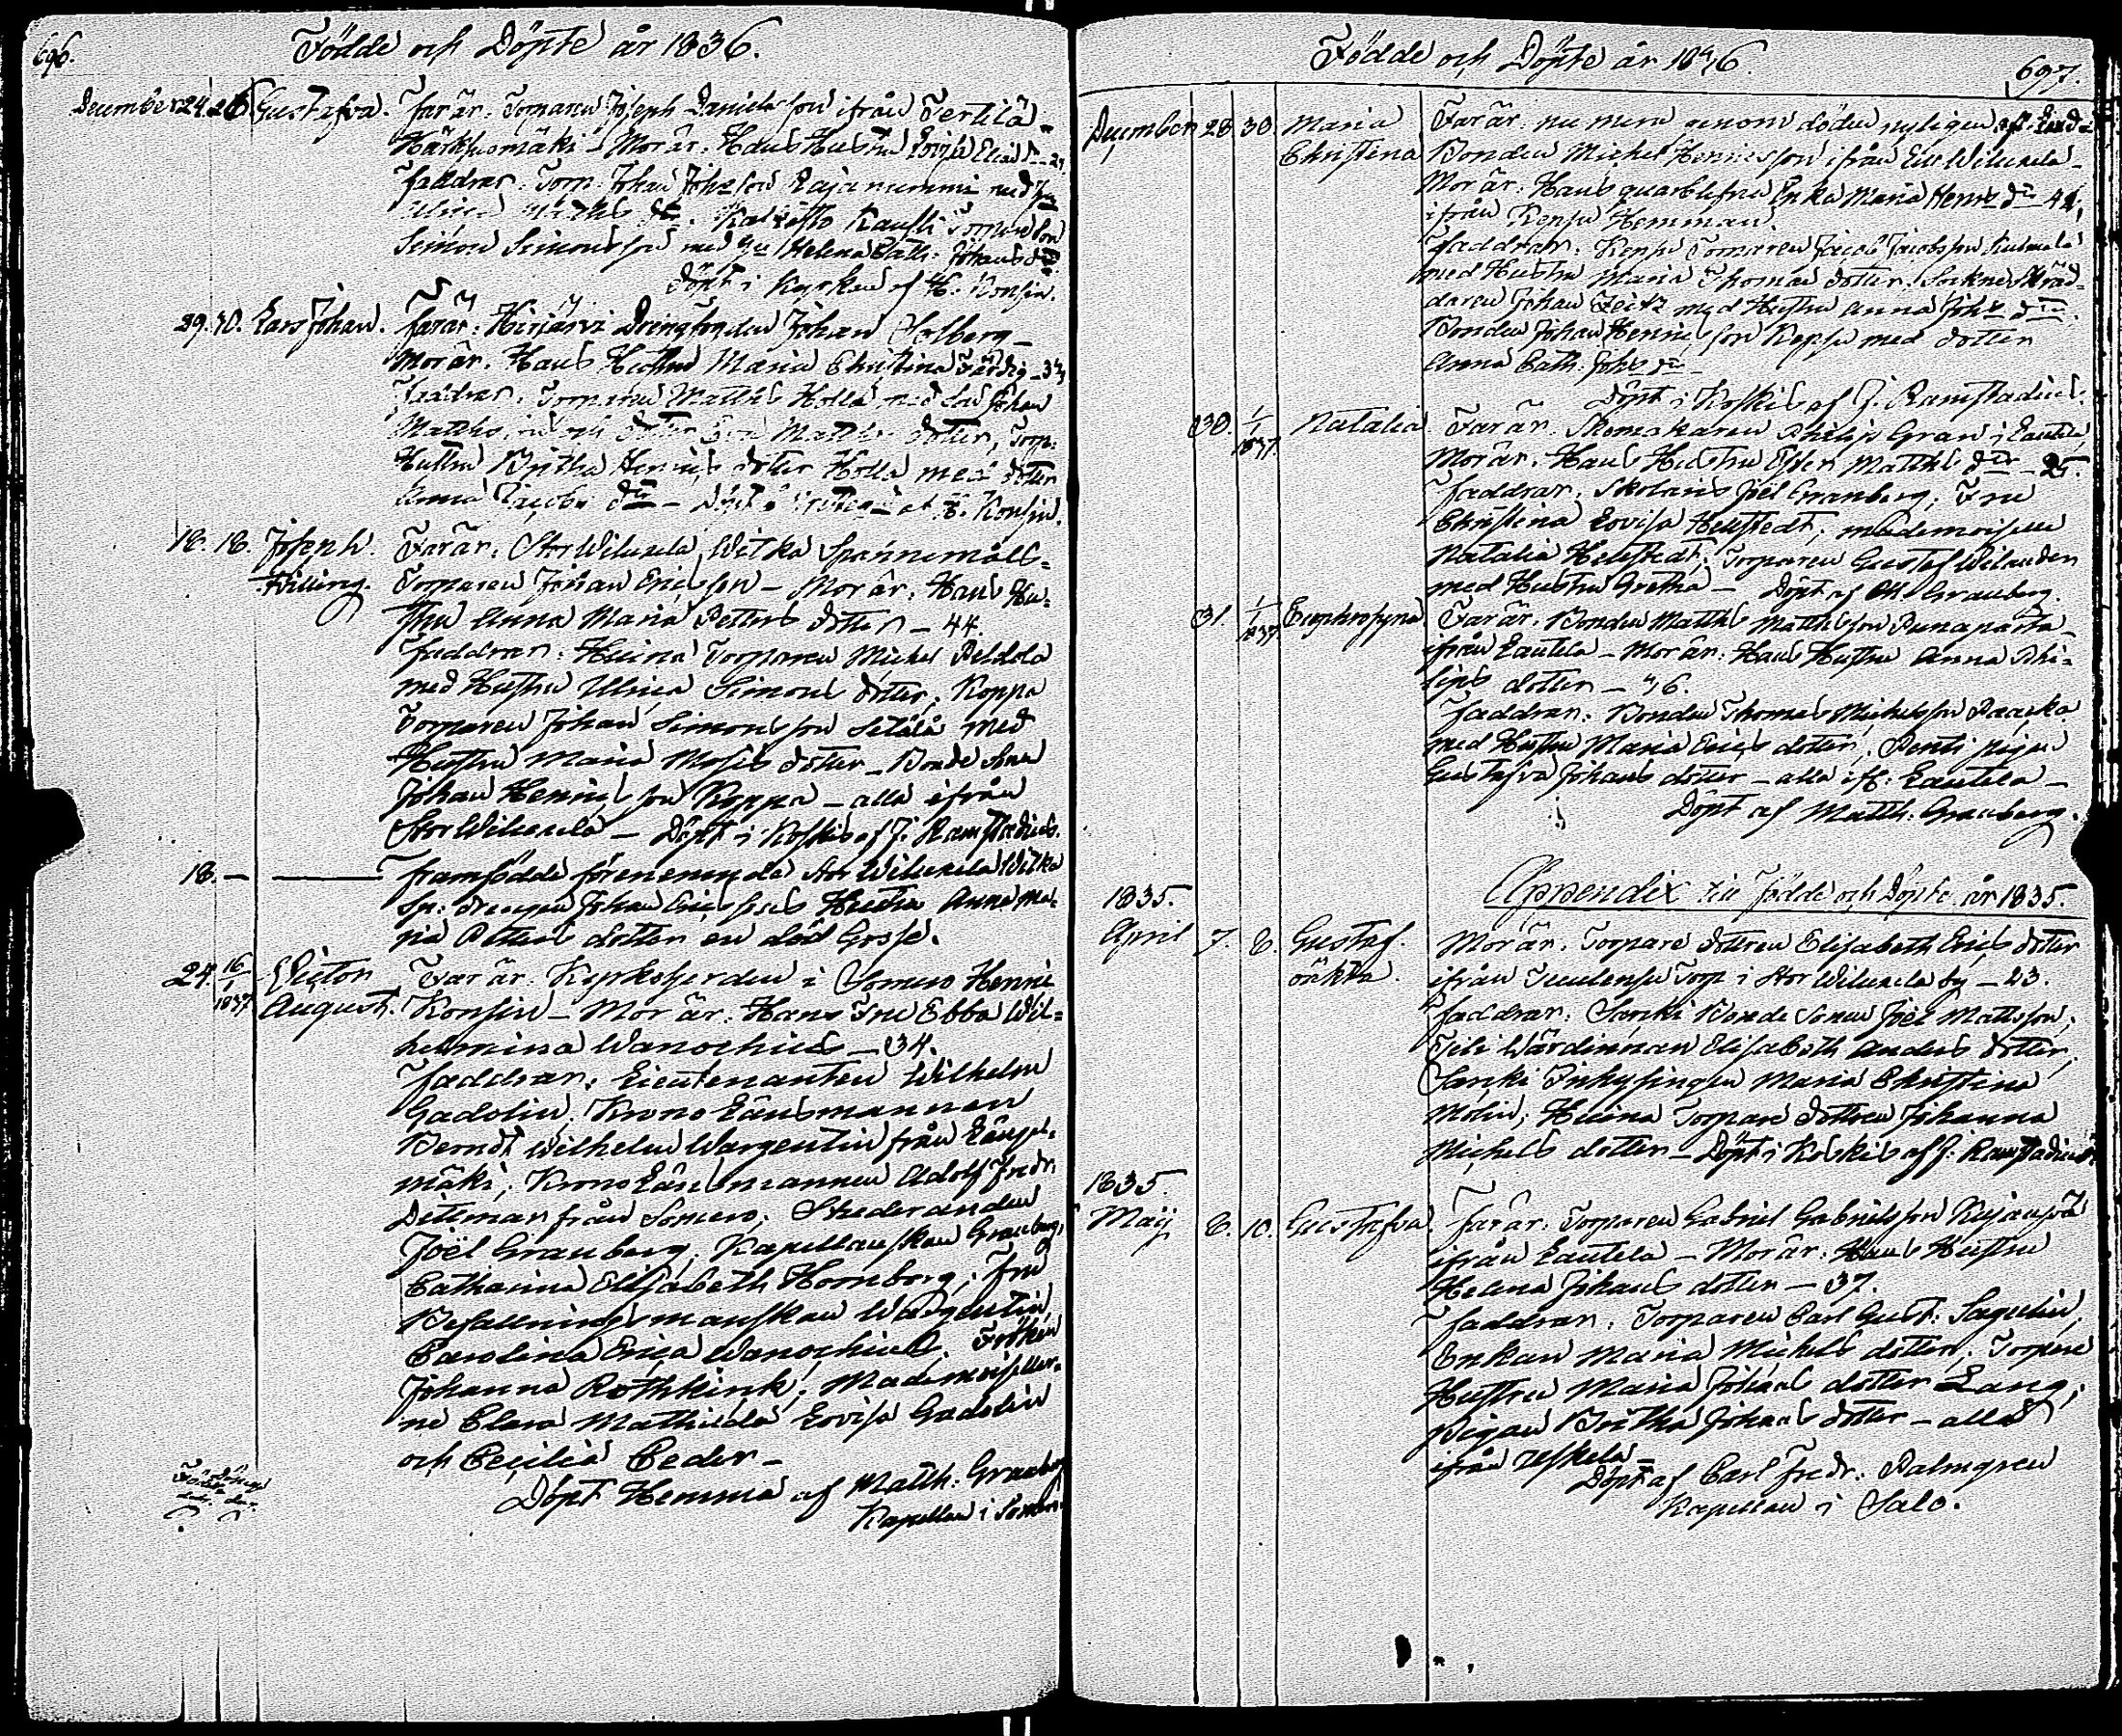 696.
Födde och Döpte år 1836.
December 24. 26. Gustafva. Far är. Torparen Joseph Danielsson ifrån Terttilä
Härkhiomäki – Mor är. Hans Hustru Lovisa
Faddrar. Torp. Johan Johansson Lajanummi med Hu
Ulrica
Simon Simonsson med Hu Helena Cath. Johans dr
Döpt i Kyrkan af H. Konsin.
29. 30. Lars Johan. Far är. Hirjärvi Drängbonden Johan Solberg –
Mor är. Hans Hustru Maria Christina Färdig –
Faddrar. Torparen Matths Holla med Johan
Matths dotter Matths dotter, Torp.
Hustru Britha Henrics dotter Holla med dotter
Anna Jacobs dr – Döpt af H. Konsin.
18. 18. Joseph. Far är. Stor Wiluxela, Witka Spannemåls-
Flilling. Torparen Johan Ericsson – Mor är. Hans Hu-
stru Anna Maria Petters dotter – 44.
Faddrar. Huina Torparen Michel Peldola
med Hustru Ulrica Simons dotter; Koppa
Torparen Johan Simonsson Setälä med
Hustru Maria Mosis dotter – Bonde
Johan Henricsson Koppa – alla ifrån
Stor Wiluxela – Döpt i Koskis af J. Ramstadius.
18. – Framfödde förenemnde Stor Wiluxela Witka
Sp. Johan Ericssons Hustru Anna Ma-
ria Petters dotter en död Gosse.
24. 16/1 1837 Victor Far är. Kyrkoherden i Somero Henric
August. Konsin – Mor är. Hans Fru Ebba Wil-
helmina Wanochius – 34.
Faddrar. Lieutenanten Wilhelm
Gadolin; Krono Länsmannen
Berndt Wilhelm Wargentin från Längel-
mäki; Krono Länsmannen Adolf Fredr.
Dittmar från Somero. Studeranden
Joël Granberg; Kapellanskan Granberg,
Catharina Elisabeth Hornborg; Fru
Befallningsmanskan Wargentin,
Carolina Erica Wanochius. Fröken
Johanna Rothkirk; Mademoiseller-
ne Clara Mathilda Lovisa Gadolin
och Cecilia Ceder –
Döpt Hemma af Matth. Granberg
Kapellan i Somero.
Födde och Döpte år 1836.
697.
December 28 30 Maria Far är nu mera genom döden nyligen
Christina Bonden Michel Henricsson ifrån Lill Wiluxela –
Mor är. Hans quarblefne Enka Maria Henrs dr 42,
ifrån Keppu Hemman.
Faddrar. Keppu Torparen Jacob Jacobsson Kulmala
med Hustru Maria Thomas dotter. Sockne Skräd-
daren Johan Zeitz med Hustru Anna Johs dr.
Bonden Johan Henricsson Keppu med dotter
Anna Cath. Johs dr –
Döpt i Koskis af J. Ramstadius.
30. 1/1 1837. Natalia Far är. Skomakaren Philip Gran i Lautela,
Mor är. Hans Hustru Ester Matths dr – 25.
Faddrar. Skolaris Joël Granberg; Fru
Christina Lovisa Hellstedt; Mademoiselle
Natalia Hellstedt; Torparen Gustaf Welander
med Hustru Gretha – Döpt af M. Granberg.
31. 1/1 1837. Euphrosyna Far är. Bonden Matths Matthsson Punaparta
ifrån Lautela – Mor är. Hans Hustru Anna Phi-
lips dotter – 36.
Faddrar. Bonden Thomas Michelsson Paarka
med Hustru Maria Erics dotter, Pentti pigan
Gustafva Johans dotter – alla ifr. Lautela –
Döpt af Matth. Granberg.
Appendix till Födde och Döpte år 1835.
1835.
April 7. 8. Gustaf. Mor är. Torpare dottren Elisabeth Erics dotter
oäkta. ifrån Torp i Stor Wiluxela by – 23.
Faddrar. Sarcki Bonde Sonen Joël Mattsson;
Tili Wärdinnan Elisabeth Anders dotter;
Sarcki Inhysingen Maria Christina
Molin; Huina Torpare dottren Johanna
Michels dotter – Döpt i Koskis af J. Ramstadius.
1835.
Maij 8. 10. Gustafva Far är. Torparen Gabriel Gabrielsson Kujanpää
ifrån Lautela – Mor är. Hans Hustru
Helena Johans dotter – 37.
Faddrar. Torparen Carl Gust. Sagulin;
Enkan Maria Michels dotter; Torpare
Hustru Maria Johans dotter Lang;
pigan Britha Johans dotter – alla
ifrån Uskela –
Döpt af Carl Fredr. Palmgren
Kapellan i Salo.